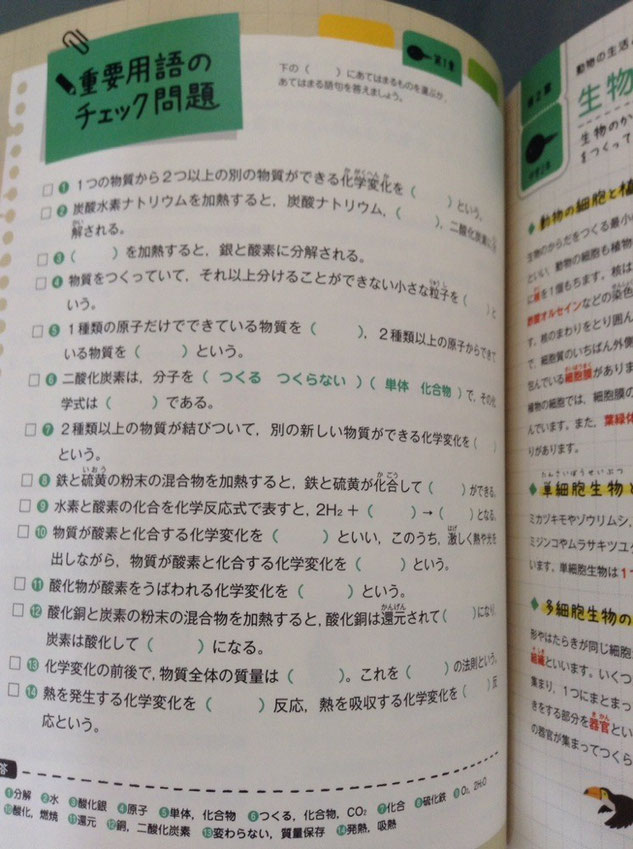 重要用語の
チェック問題
第1章
下の（　　）にあてはまるものを選ぶか，
あてはまる語句を答えましょう。
□ ❶ 1つの物質から2つ以上の別の物質ができる化学変化を（　　）という。
かがくへんか
□ ❷ 炭酸水素ナトリウムを加熱すると，炭酸ナトリウム，（　　），二酸化炭素に分
かい
解される。
□ ❸（　　）を加熱すると，銀と酸素に分解される。
□ ❹ 物質をつくっていて，それ以上分けることができない小さな粒子を（　　）と
りゅうし
いう。
□ ❺ 1種類の原子だけでできている物質を（　　），2種類以上の原子からできて
いる物質を（　　）という。
□ ❻ 二酸化炭素は，分子を（ つくる　つくらない ）（ 単体　化合物 ）で，その化
学式は（　　）である。
□ ❼ 2種類以上の物質が結びついて，別の新しい物質ができる化学変化を（　　）
という。
いおう
かごう
□ ❽ 鉄と硫黄の粉末の混合物を加熱すると，鉄と硫黄が化合して（　　）ができる。
□ ❾ 水素と酸素の化合を化学反応式で表すと，2H₂＋（　　）→（　　）となる。
□ ❿ 物質が酸素と化合する化学変化を（　　）といい，このうち，激しく熱や光を
はげ
出しながら，物質が酸素と化合する化学変化を（　　）という。
□ ⓫ 酸化物が酸素をうばわれる化学変化を（　　）という。
かんげん
□ ⓬ 酸化銅と炭素の粉末の混合物を加熱すると，酸化銅は還元されて（　　）になり，
炭素は酸化して（　　）になる。
□ ⓭ 化学変化の前後で，物質全体の質量は（　　）。これを（　　）の法則という。
□ ⓮ 熱を発生する化学変化を（　　）反応，熱を吸収する化学変化を（　　）反
応という。
答
❶分解　❷水　❸酸化銀　❹原子　❺単体，化合物　❻つくる，化合物，CO₂　❼化合　❽硫化鉄　❾O₂，2H₂O
❿酸化，燃焼　⓫還元　⓬銅，二酸化炭素　⓭変わらない，質量保存　⓮発熱，吸熱
第2章
動物の生活
生物
生物のか
をつくって
◆動物の細胞と植
生物のからだをつくる最小
といい，動物の細胞も植物
に核を1個もちます。核は
酢酸オルセインなどの染色
す。核のまわりをとり囲ん
で，細胞質のいちばん外側
さいぼうまく
包んでいる細胞膜がありま
植物の細胞では，細胞膜の
んでいます。また，葉緑体
りがあります。
たんさいぼうせいぶつ
◆単細胞生物と
ミカヅキモやゾウリムシ，
ミジンコやムラサキツユク
います。単細胞生物は1つ
◆多細胞生物の
形やはたらきが同じ細胞
そしき
組織といいます。いくつ
集まり，1つにまとまっ
きかん
きをする部分を器官とい
の器官が集まってつくら